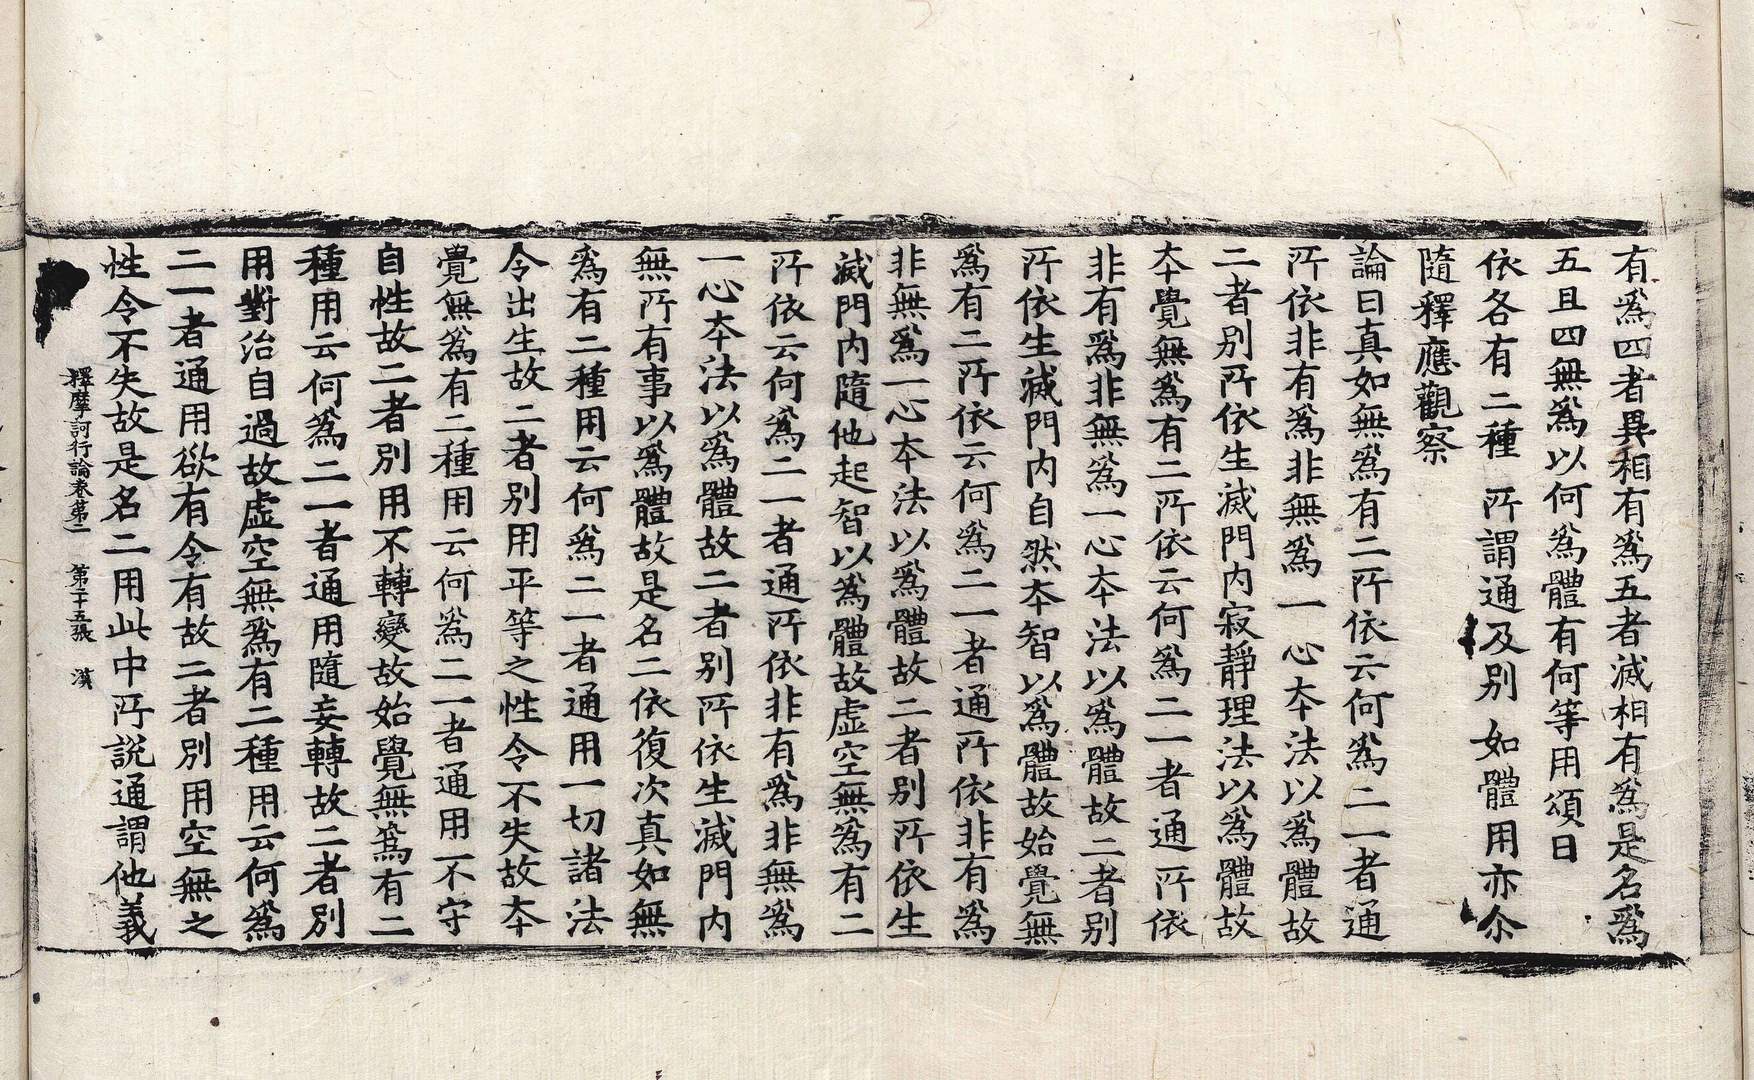 有爲四者異相有爲五者滅相有爲是名爲
五且四無爲以何爲體有何等用頌曰
依各有二種　所謂通及別　如體用亦尒
隨釋應觀察
論曰真如無爲有二所依云何爲二一者通
所依非有爲非無爲一心夲法以爲體故
二者別所依生滅門内寂靜理法以爲體故
夲覺無爲有二所依云何爲二一者通所依
非有爲非無爲一心夲法以爲體故二者別
所依生滅門内自然夲智以爲體故始覺無
爲有二所依云何爲二一者通所依非有爲
非無爲一心夲法以爲體故二者別所依生
滅門内隨他起智以爲體故虛空無爲有二
所依云何爲二一者通所依非有爲非無爲
一心夲法以爲體故二者別所依生滅門内
無所有事以爲體故是名二依復次真如無
爲有二種用云何爲二一者通用一切諸法
令出生故二者別用平等之性令不失故夲
覺無爲有二種用云何爲二一者通用不守
自性故二者別用不轉變故始覺無爲有二
種用云何爲二一者通用隨妄轉故二者別
用對治自過故虛空無爲有二種用云何爲
二一者通用欲有令有故二者別用空無之
性令不失故是名二用此中所説通謂他義
釋摩訶衍論卷第二　第二十五張　漢